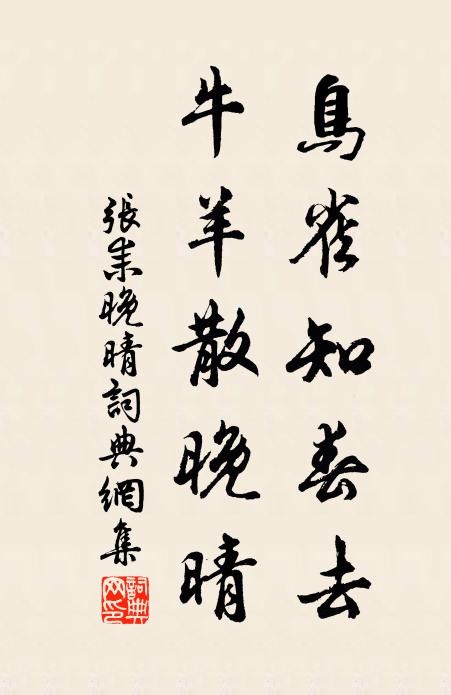 鳥雀知春去
牛羊散晚晴
張耒晚晴詞典網集
詞典網印